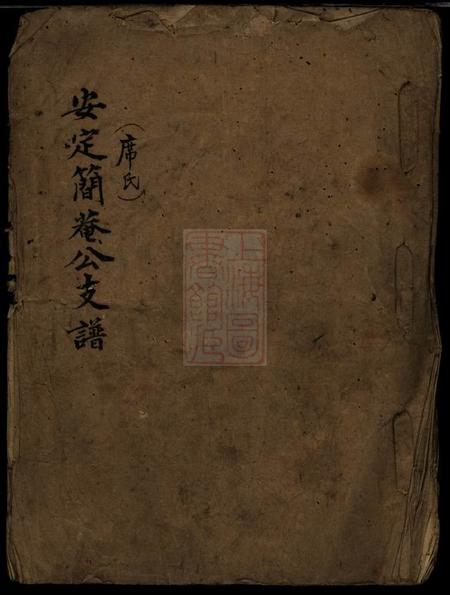 安定簡菴公支譜
（席氏）
上海圖
書館藏